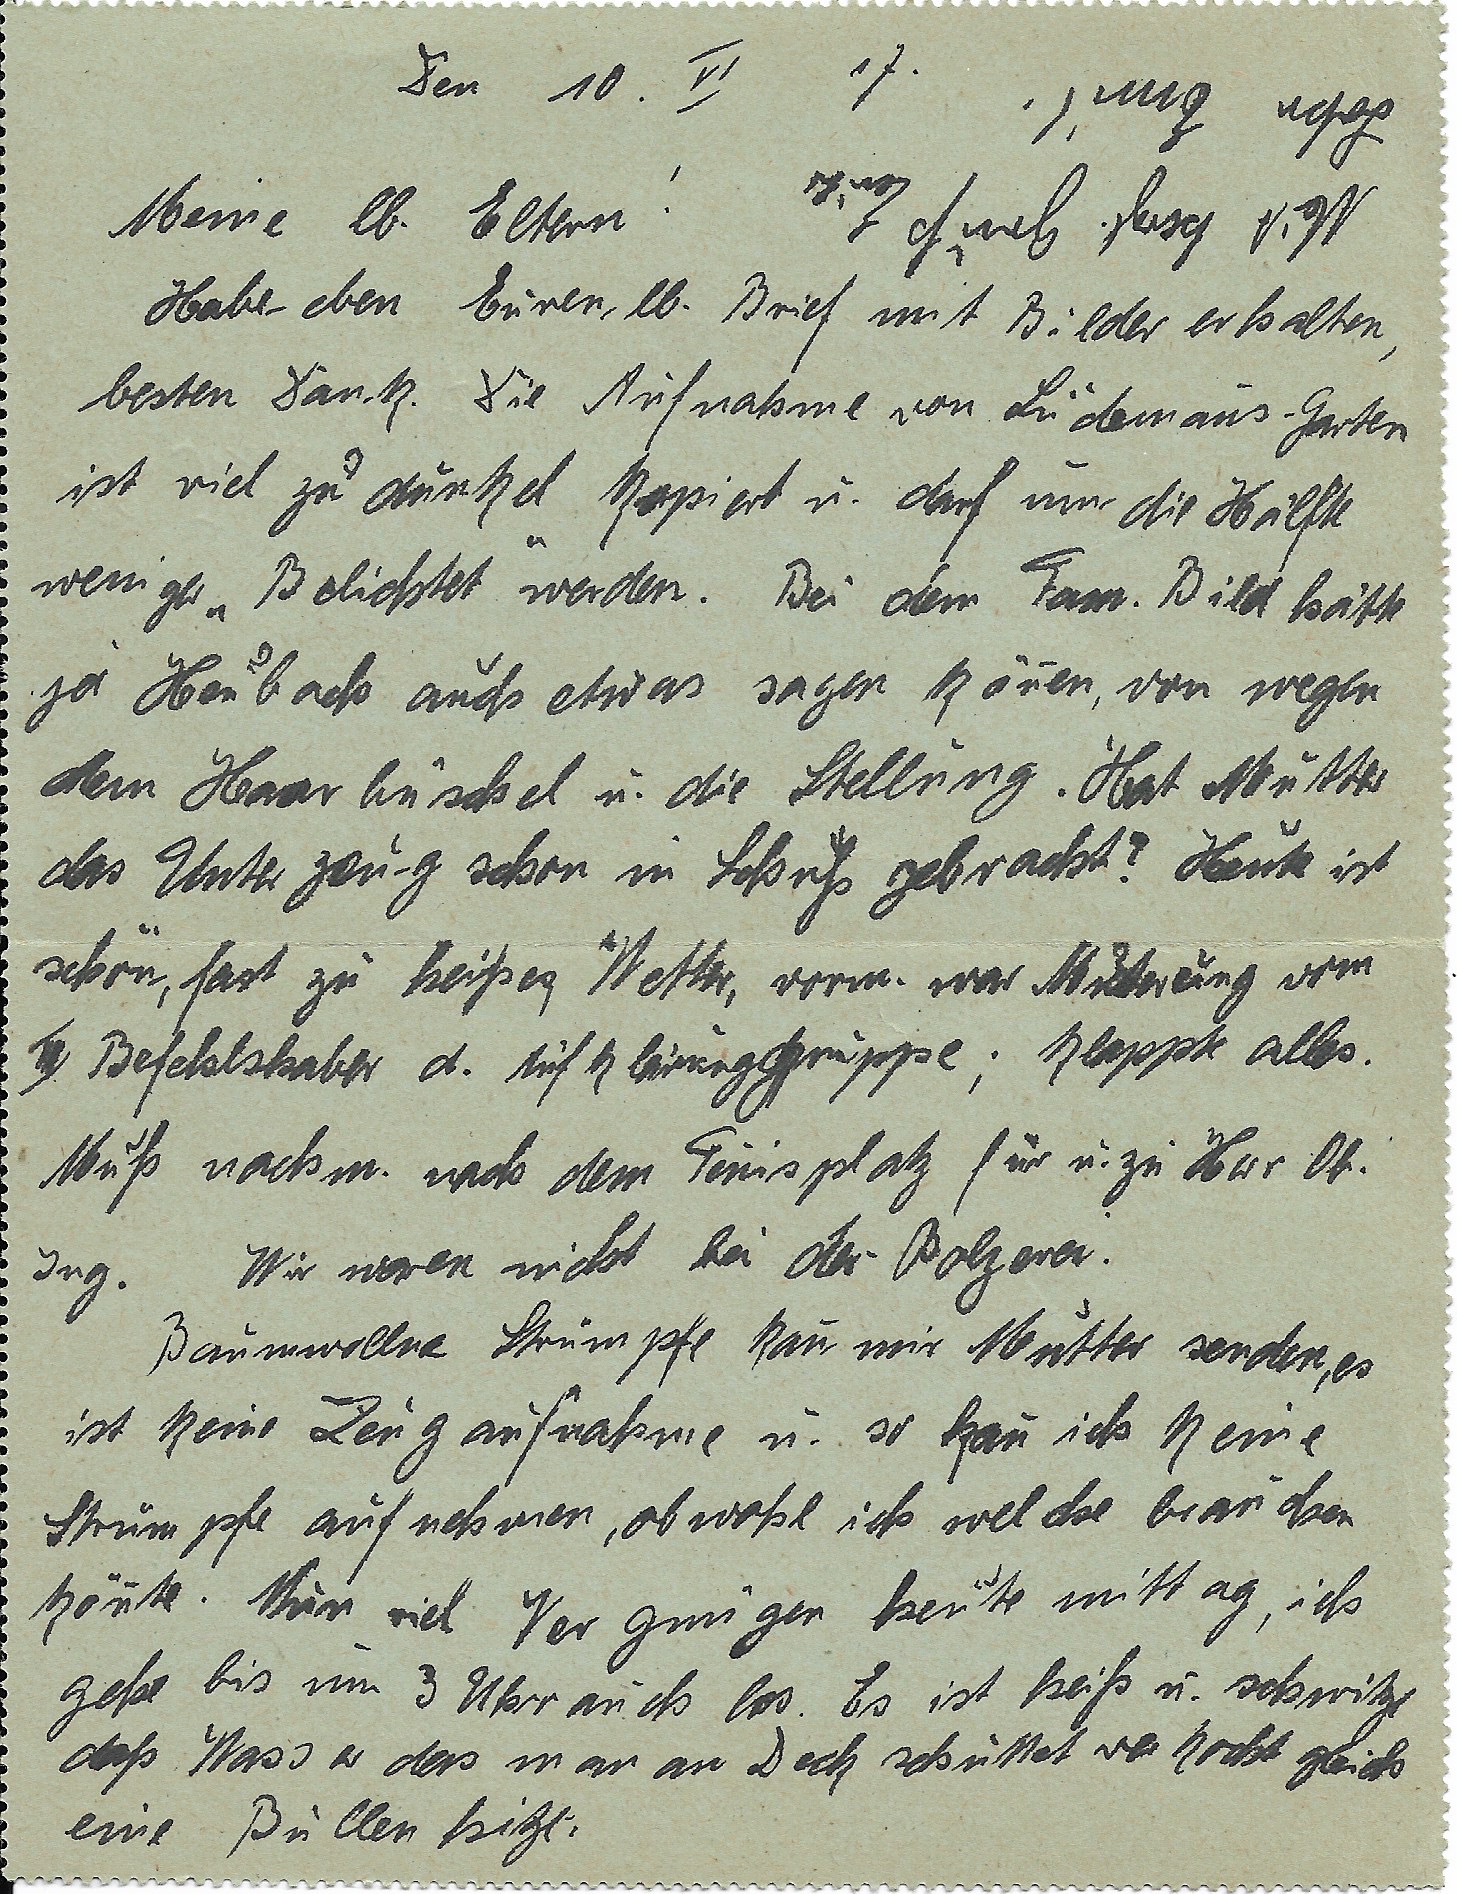 Den 10. VI 17.
Meine lb. Eltern!
Habe eben Euren lb. Brief mit Bilder erhalten,
besten Dank. Die Aufnahme von Lüdemanns Garten
ist viel zu dunkel kopiert u. darf um die Hälfte
weniger „Belichtet“ werden. Bei dem Fam. Bild hätte
ja Heubach auch etwas sagen kön̄en, von wegen
dem Haarbüschel u. die Stellung. Hat Mutter
das Unterzeug schon in Schuß gebracht? Heute ist
schön, fast zu heißes Wetter, vorm. war Musterung vom
Befehlshaber d. Aufklärungsgruppe; klappte alles.
Muß nachm. nach dem Ten̄isplatz für u. zu Herr Ob.
Ing. Wir waren nicht bei der Bolzerei.
Baumwollne Strümpfe kan̄ mir Mutter senden, es
ist keine Zeugaufnahme u. so kan̄ ich keine
Strümpfe aufnehmen, obwohl ich welche brauchen
kön̄te. Nun viel Vergnügen heute mittag, ich
gehe bis um 3 Uhr auch los. Es ist heiß u. schwitze
daß Wasser das man an Deck schüttet verkocht gleich
eine Bullenhitze.